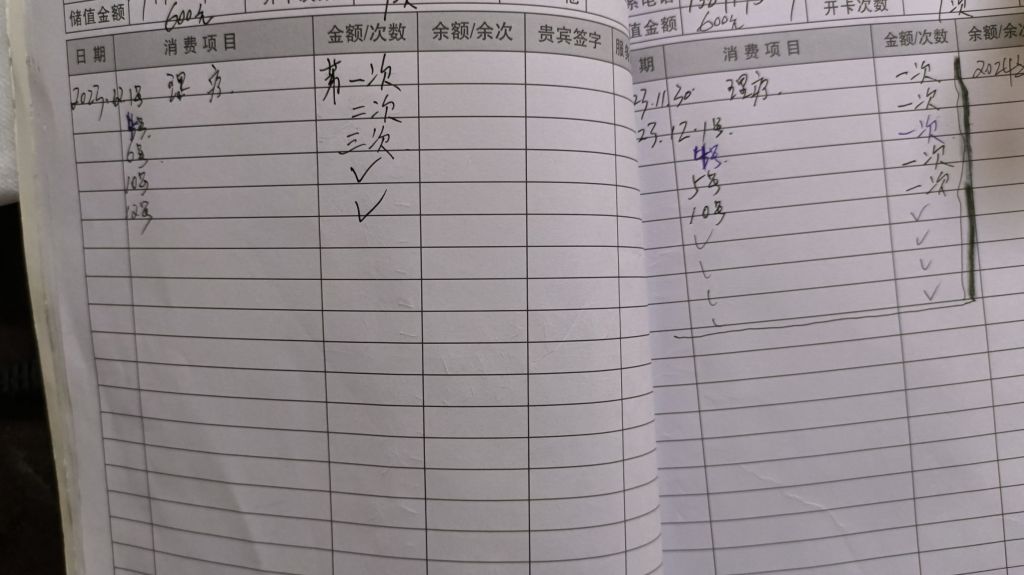 储值金额 600元
日期 消费项目 金额/次数 余额/余次 贵宾签字
2023.12.1号 理疗 第一次
4号 三次
6号 三次
10号 ✓
12号 ✓
值金额 600元 开卡次数
期 消费项目 金额/次数 余额/余次
23.11.30 理疗 一次
23.12.1号 一次
4号 一次
5号 一次
10号 一次
✓ ✓
✓
✓